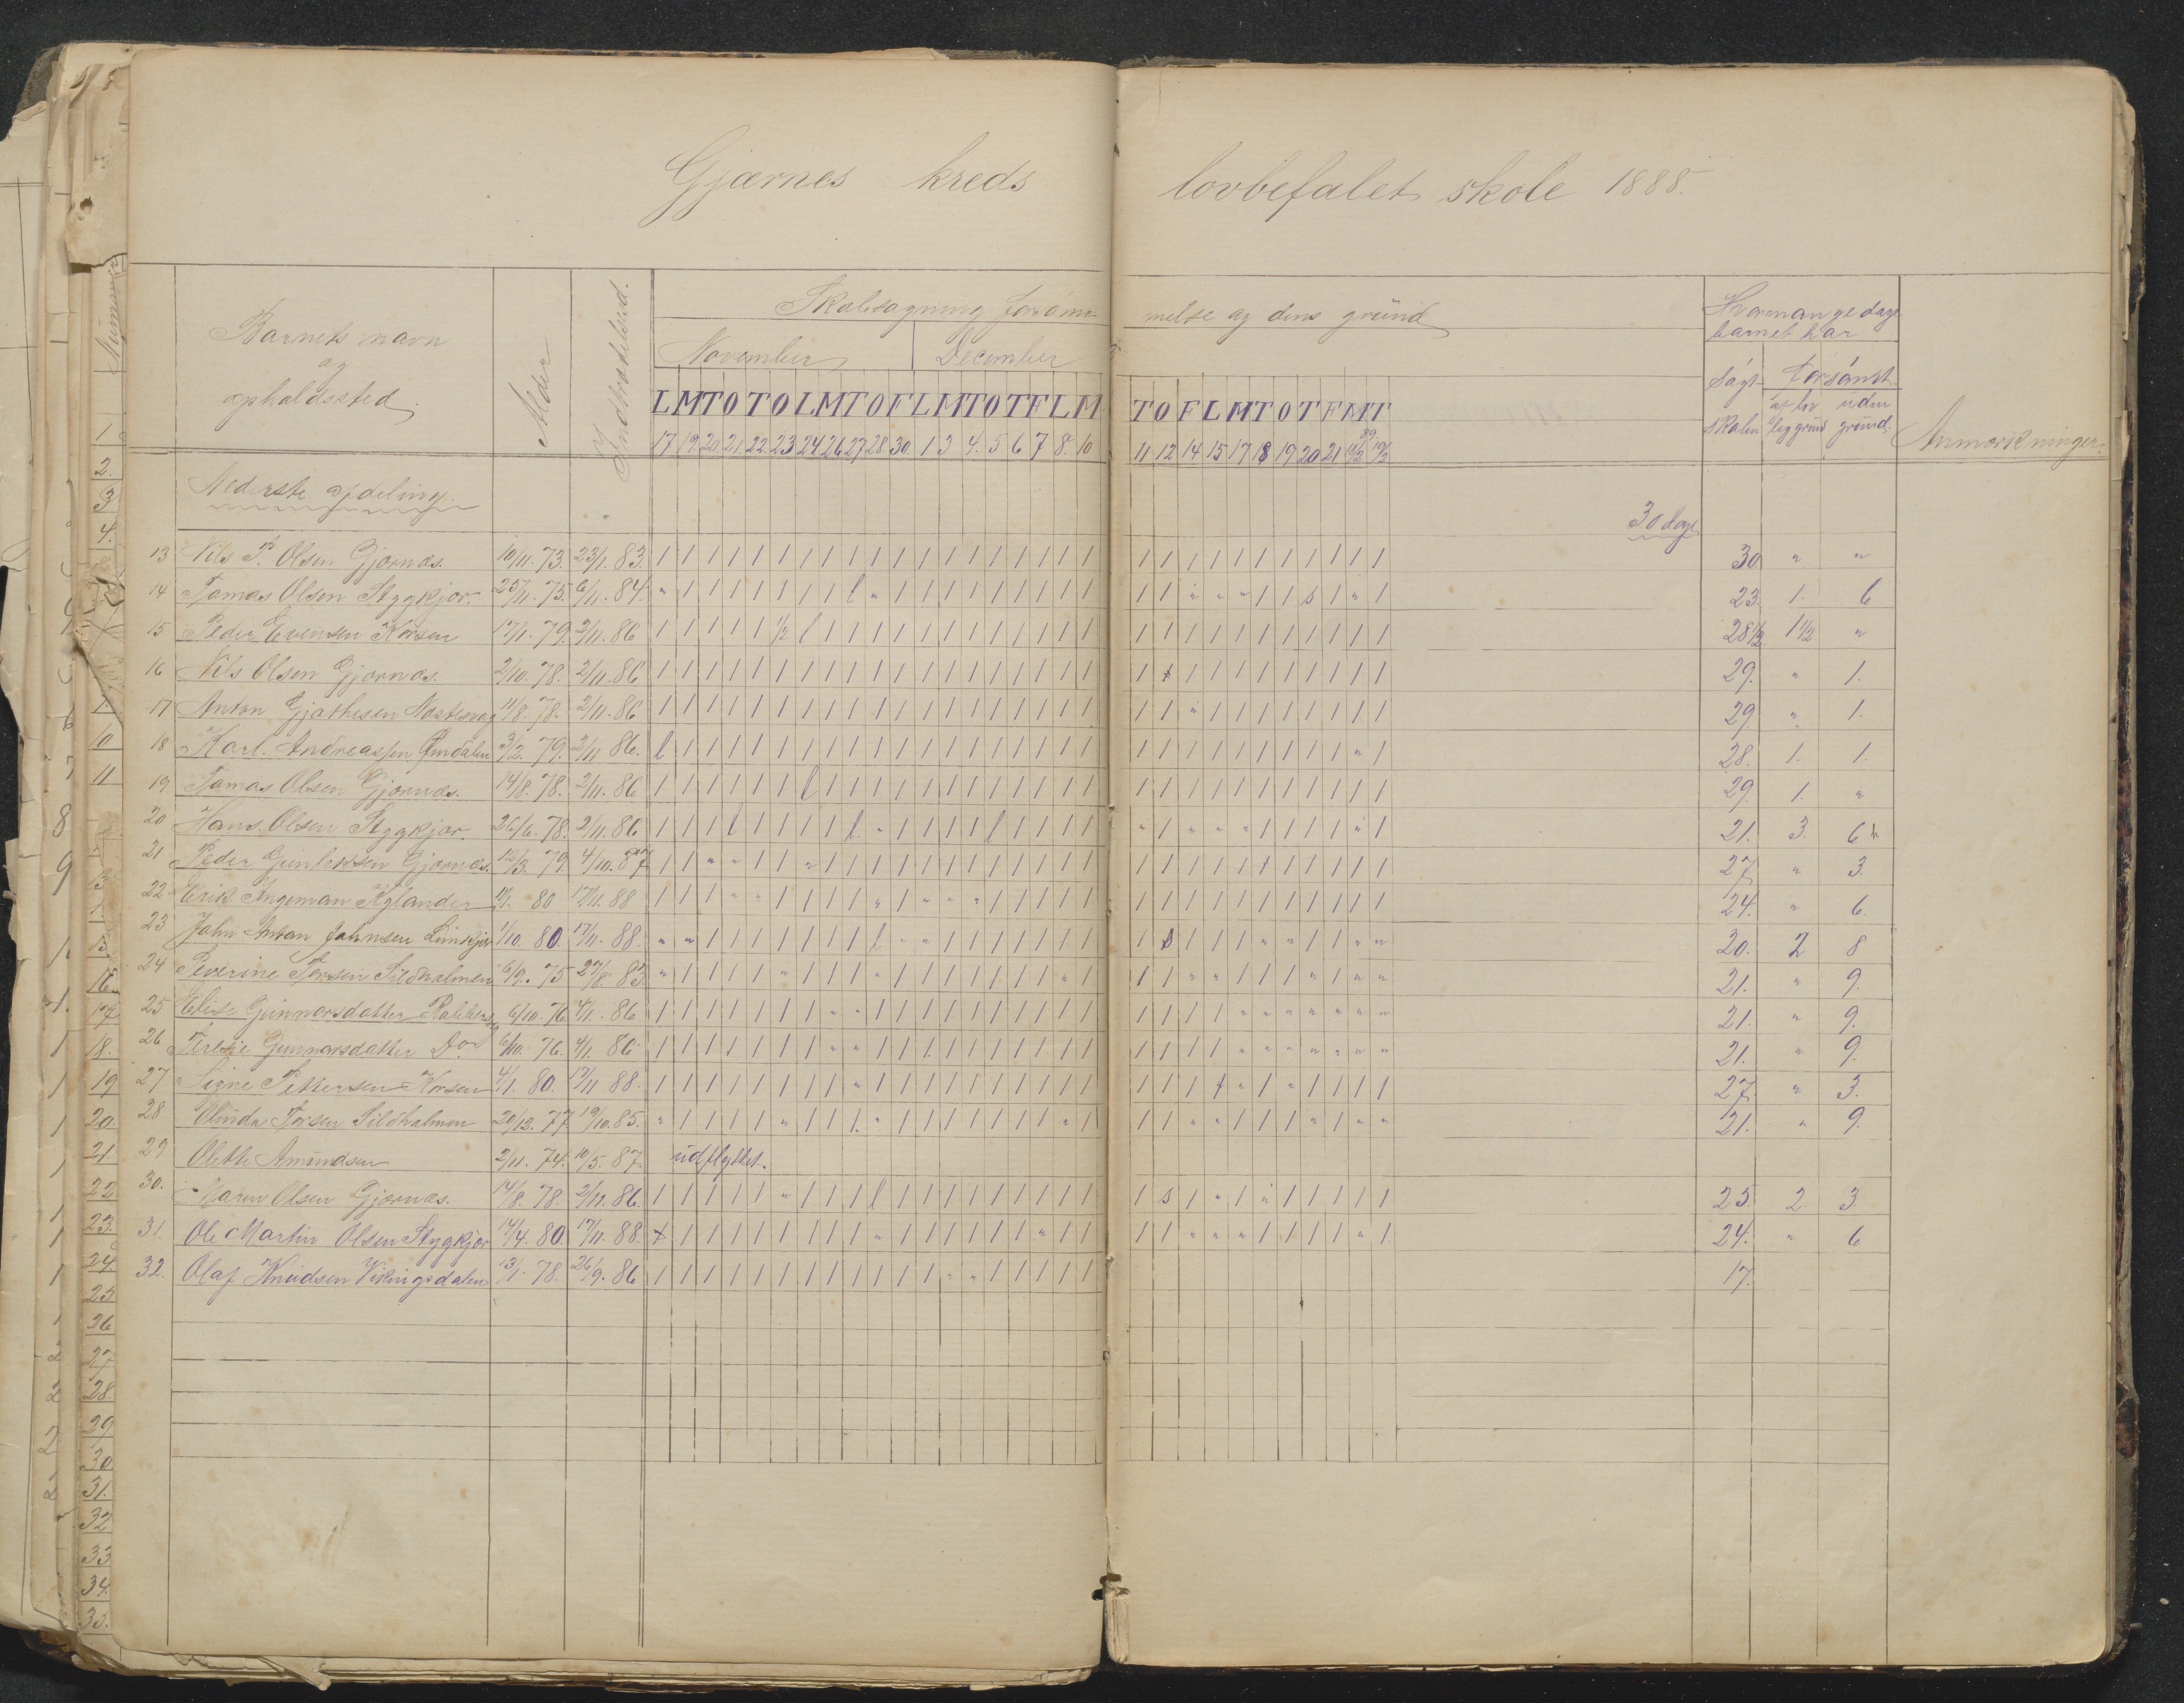 Gjærnes kreds lovbefalet skole 1888.
Nummer
Barnets navn
og
opholdssted.
Alder
Indtrædelsestid.
Skolesøgning forsøm-
melse og dens grund
November December
L M T O T O L M T O F L M T O T F L M T O F L M T O T F M T
17 19. 20 21. 22. 23 24 26 27 28. 30. 1 3 4. 5 6 7 8. 10 11 12 14 15 17 18 19 20 21
Hvormange dage
barnet har
søgt
skolen
forsømt
af lov-
lig grund
uden
grund.
Anmærkninger.
Nederste afdeling.
30 dage
13 Nils P. Olsen Gjærnæs. 10/11. 73. 23/1. 83. 30 " "
14 Tomas Olsen Styggkjær. 25/11. 75. 6/11. 84. 23. 1. 6
15 Peder Evensen Korsen 17/1. 79. 2/11. 86 28 1/2. 1 1/2 "
16 Nils Olsen Gjærnæs. 2/10. 78. 2/11. 86 29. " 1.
17 Anton Gjathesen 11/8. 78. 2/11. 86 29 " 1.
18 Karl. Andreassen 3/2. 79. 2/11 86. 28. 1. 1.
19 Tomas Olsen Gjærnæs. 14/8. 78. 2/11. 86 29. 1. "
20 Hans. Olsen Styggkjær. 26/6. 78. 2/11. 86 21. 3. 6
21 Peder Gunleksen Gjærnæs. 12/3. 79. 4/10. 87 27. " 3.
22 Erik Angeman Kylander 80 17/11. 88 24. " 6.
23 John Anton Johnsen 1/10. 80. 17/11. 88. 20. 2 8
24 Severine Torsen Sildholmen 6/9. 75 27/8. 83. 21. " 9.
25 Elise Gunnarsdatter 6/10. 76 4/1. 86. 21. " 9.
26 Teresie Gunnarsdatter Do 6/10. 76. 4/1. 86 21. " 9.
27 Signe Pettersen Korsen 4/1. 80. 17/11 88. 27. " 3.
28 Olinda Torsen Sildholmen 20/12. 77 19/10. 85. 21. " 9.
29 Olette Amundsen 2/11. 74. 10/5. 87. udflyttet.
30. Maren Olsen Gjærnæs. 14/8. 78. 2/11. 86. 25. 2. 3.
31. Ole Martin Olsen Stygkjær 14/4. 80. 17/11. 88. 24. " 6
32. Olaf Knudsen Vikingsdalen 13/1. 78. 26/9. 86 17.